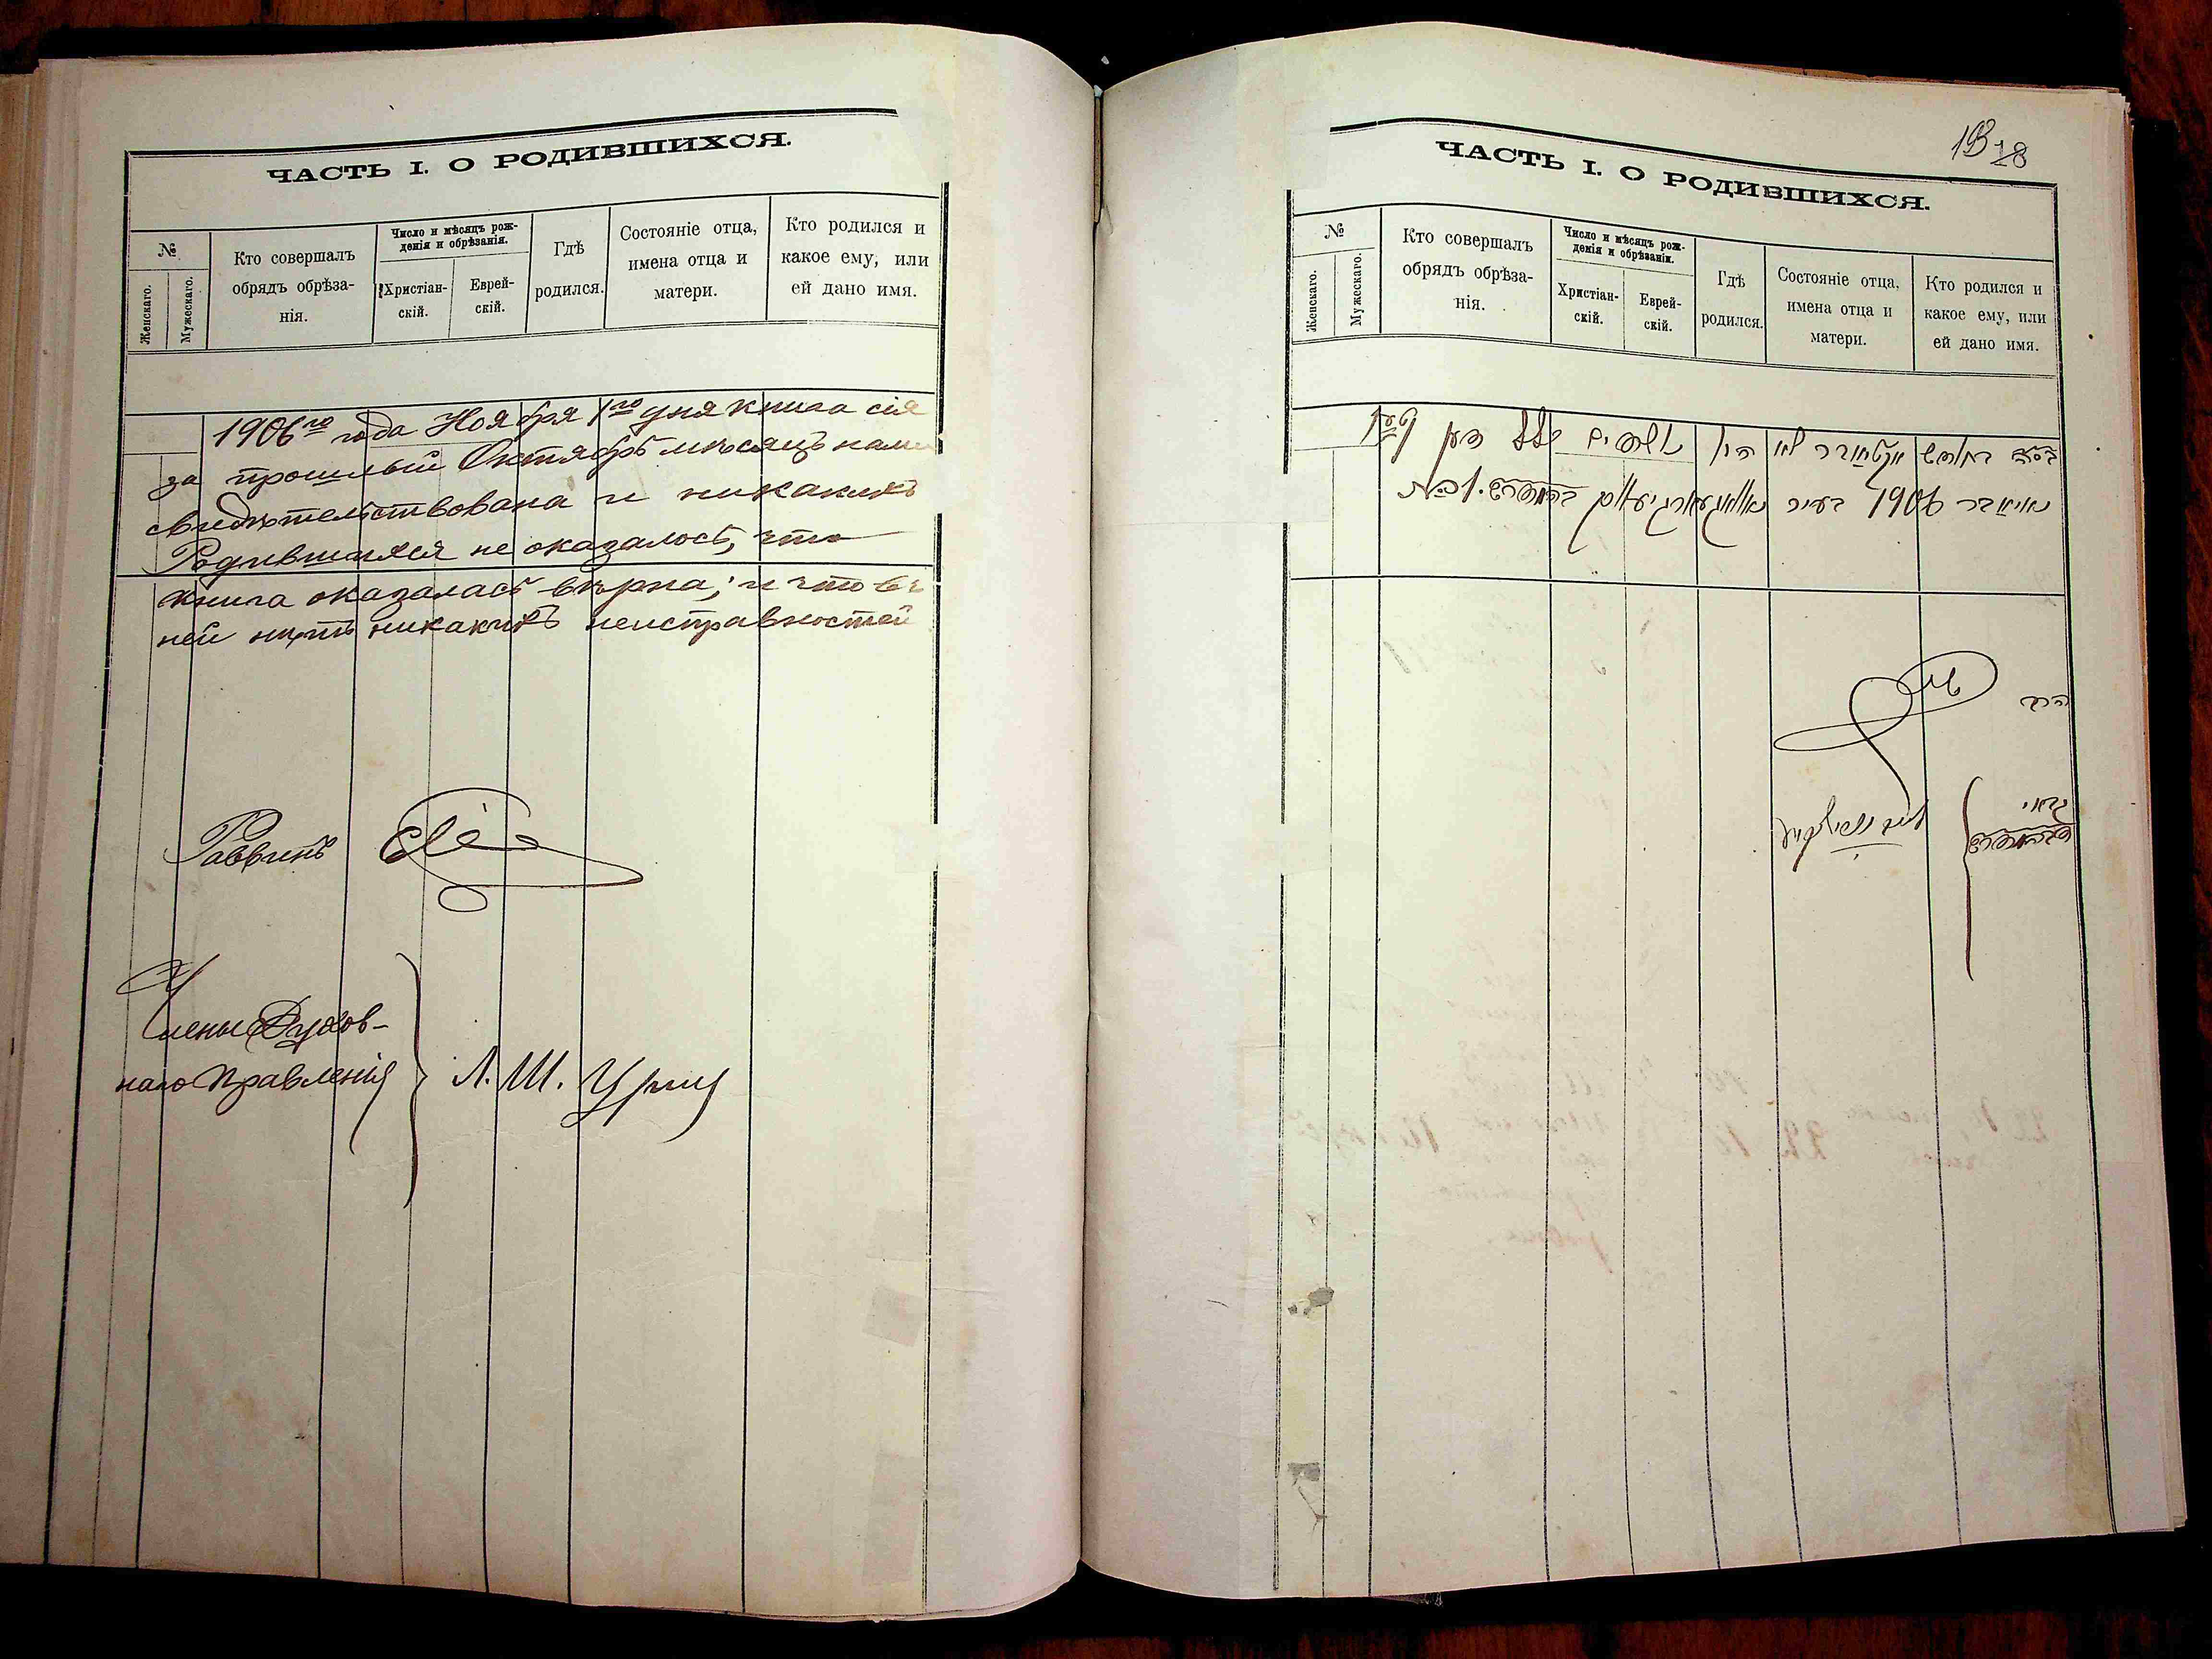 ЧАСТЬ I. О РОДИВШИХСЯ.
№
Женскаго.
Мужескаго.
Кто совершалъ
обрядъ обрѣза-
нія.
Число и мѣсяцъ рож-
денія и обрѣзанія.
Христіан-
скій.
Еврей-
скій.
Гдѣ
родился.
Состояніе отца,
имена отца и
матери.
Кто родился и
какое ему, или
ей дано имя.
1906го года Ноября 1го дня книга сія
за прошлый Октябрь мѣсяцъ нами
свидѣтельствована и никакихъ
Родившихся не оказалось, что
книга оказалась вѣрна; и что въ
ней нѣтъ никакихъ неисправностей
Раввинъ
Члены Духов-
наго Правленія
Л. Ш.
193 18
ЧАСТЬ I. О РОДИВШИХСЯ.
№
Женскаго.
Мужескаго.
Кто совершалъ
обрядъ обрѣза-
нія.
Число и мѣсяцъ рож-
денія и обрѣзанія.
Христіан-
скій.
Еврей-
скій.
Гдѣ
родился.
Состояніе отца,
имена отца и
матери.
Кто родился и
какое ему, или
ей дано имя.
אקטאבר לא היו
נאיאבר 1906
הרב